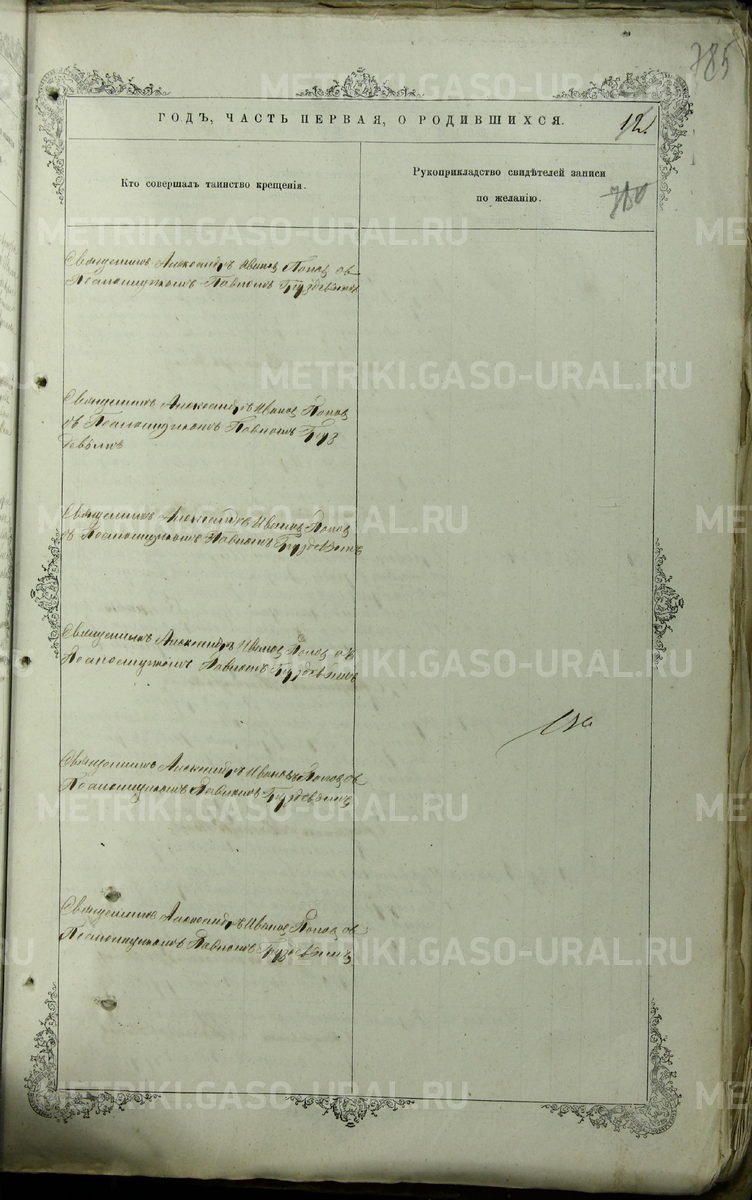 785
ГОДЪ, ЧАСТЬ ПЕРВАЯ, О РОДИВШИХСЯ.
Кто совершалъ таинство крещенія.
Рукоприкладство свидѣтелей записи
по желанію.
780
Священникъ Александръ Иванов Попов съ
Псаломщикомъ Павломъ
Священникъ Александръ Иванов Попов
съ Псаломщикомъ Павломъ
Священникъ Александръ Иванов Попов
съ Псаломщикомъ Павломъ
Священникъ Александръ Иванов Попов съ
Псаломщикомъ Павломъ
Священникъ Александръ Иванов Попов съ
Псаломщикомъ Павломъ
Священникъ Александръ Иванов Попов съ
Псаломщикомъ Павломъ
METRIKI.GASO-URAL.RU